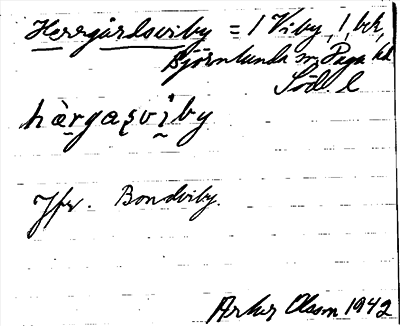 Herrgårdsviby = 1 Viby, 1 bk,
Björnlunda sn, Daga hd
Söd. l
hàrgaṣvìby
Jfr. Bondviby.
Arthur Olsson 1942